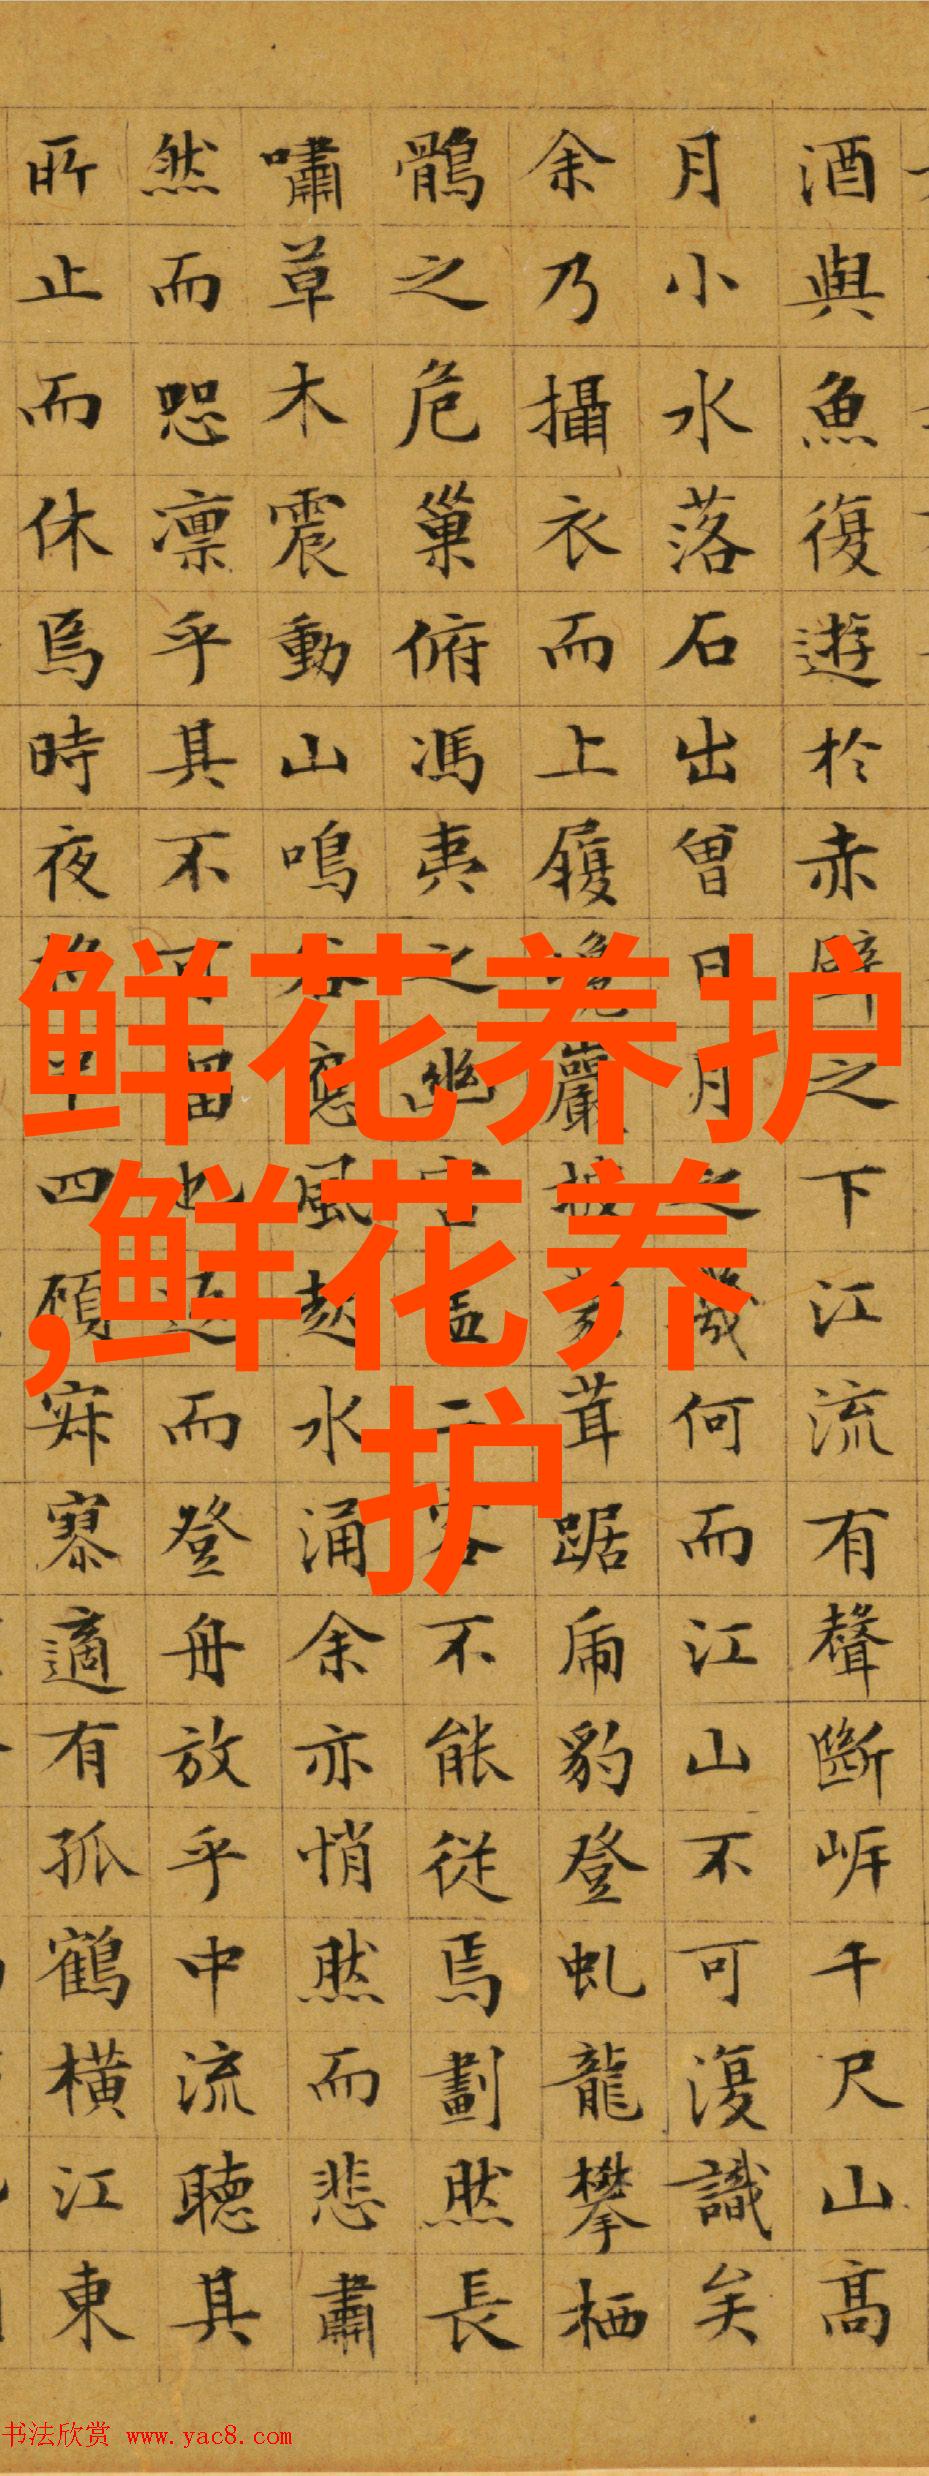 酒與魚復遊於赤壁之下江流有聲斷岸千尺山高
月小水落石出曾日月之幾何而江山不可復識矣
余乃攝衣而上履巉巖披蒙茸踞虎豹登虬龍攀栖
鶻之危巢俯馮夷之幽宮蓋二客不能從焉劃然長
嘯草木震動山鳴谷應風起水涌余亦悄然而悲肅
然而恐凛乎其不可留也返而登舟放乎中流聽其
所止而休焉時夜將半四顧寂寥適有孤鶴橫江東
鲜花养护
,鲜花养
护
书法欣赏 www.yac8.com